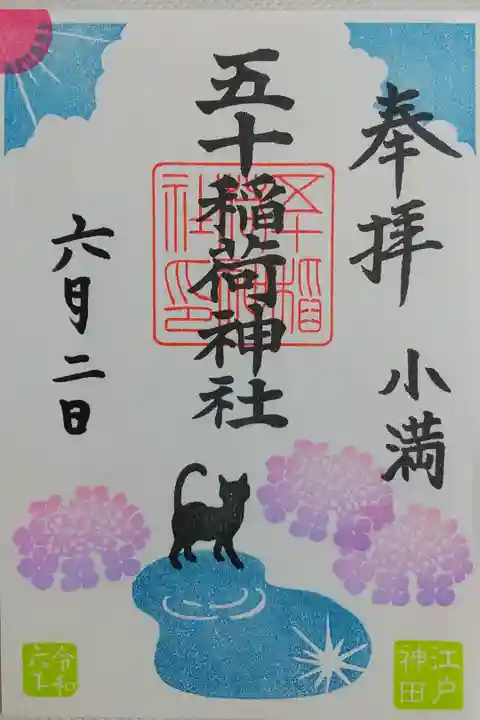 奉拝 小満
五十稲荷神社
六月二日
江戸
神田
令和
六下